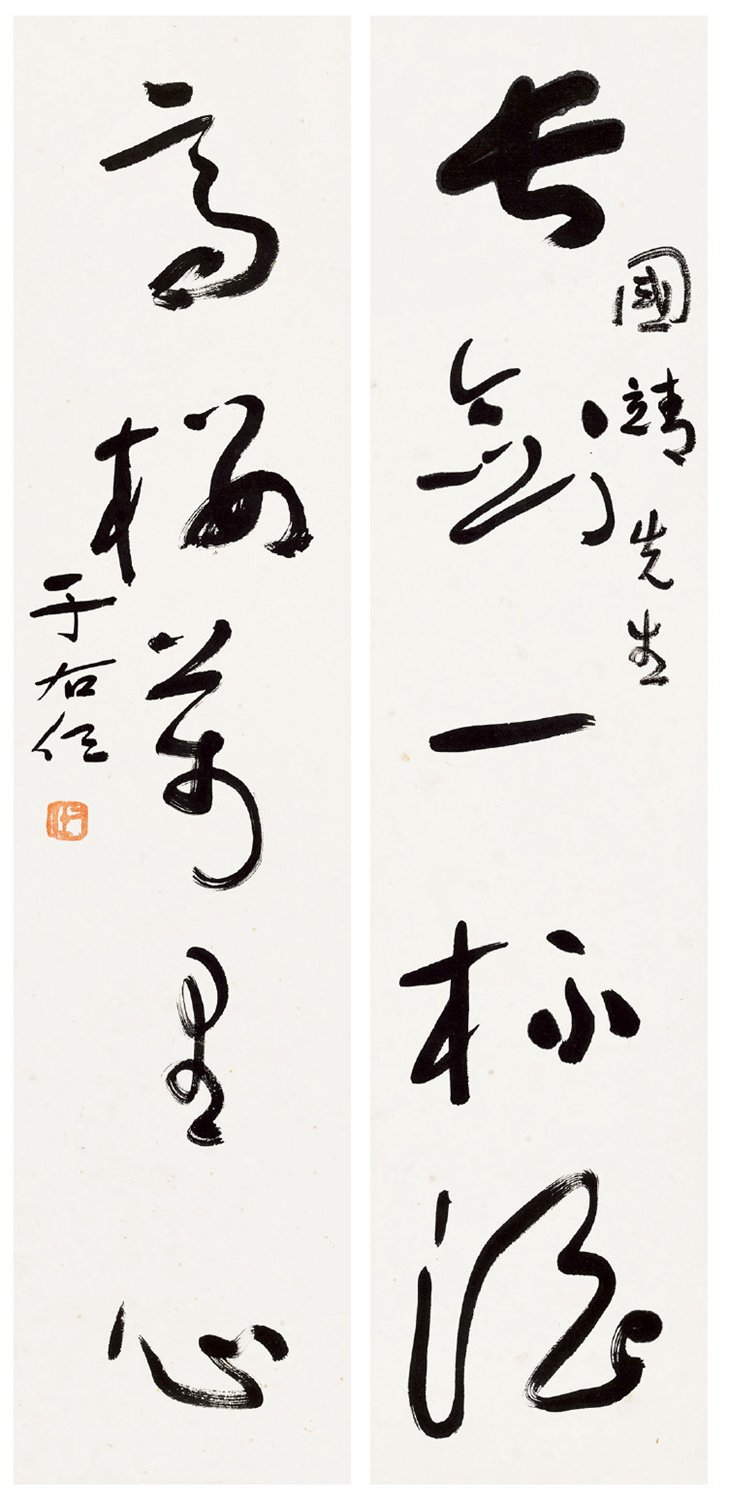 長劍一杯酒
國靖先生
高樓萬里心
于右任